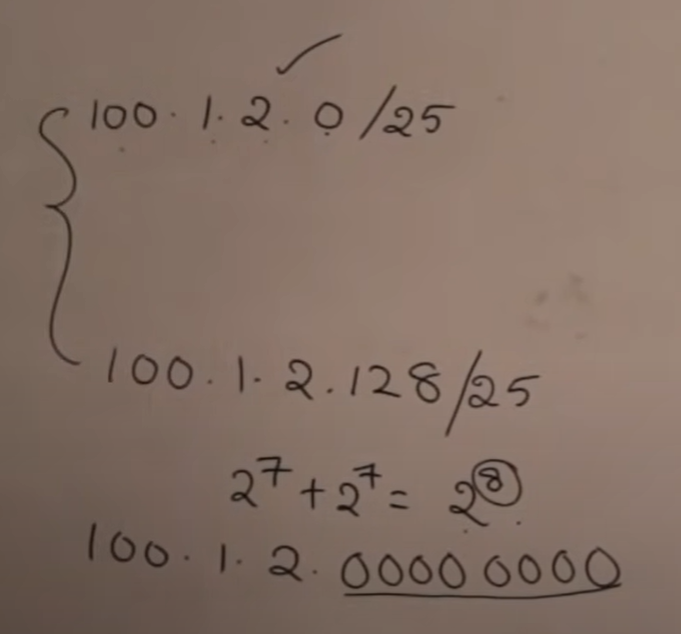 100.1.2.0/25
100.1.2.128/25
2⁷+2⁷= 2⁸
100.1.2.00000000